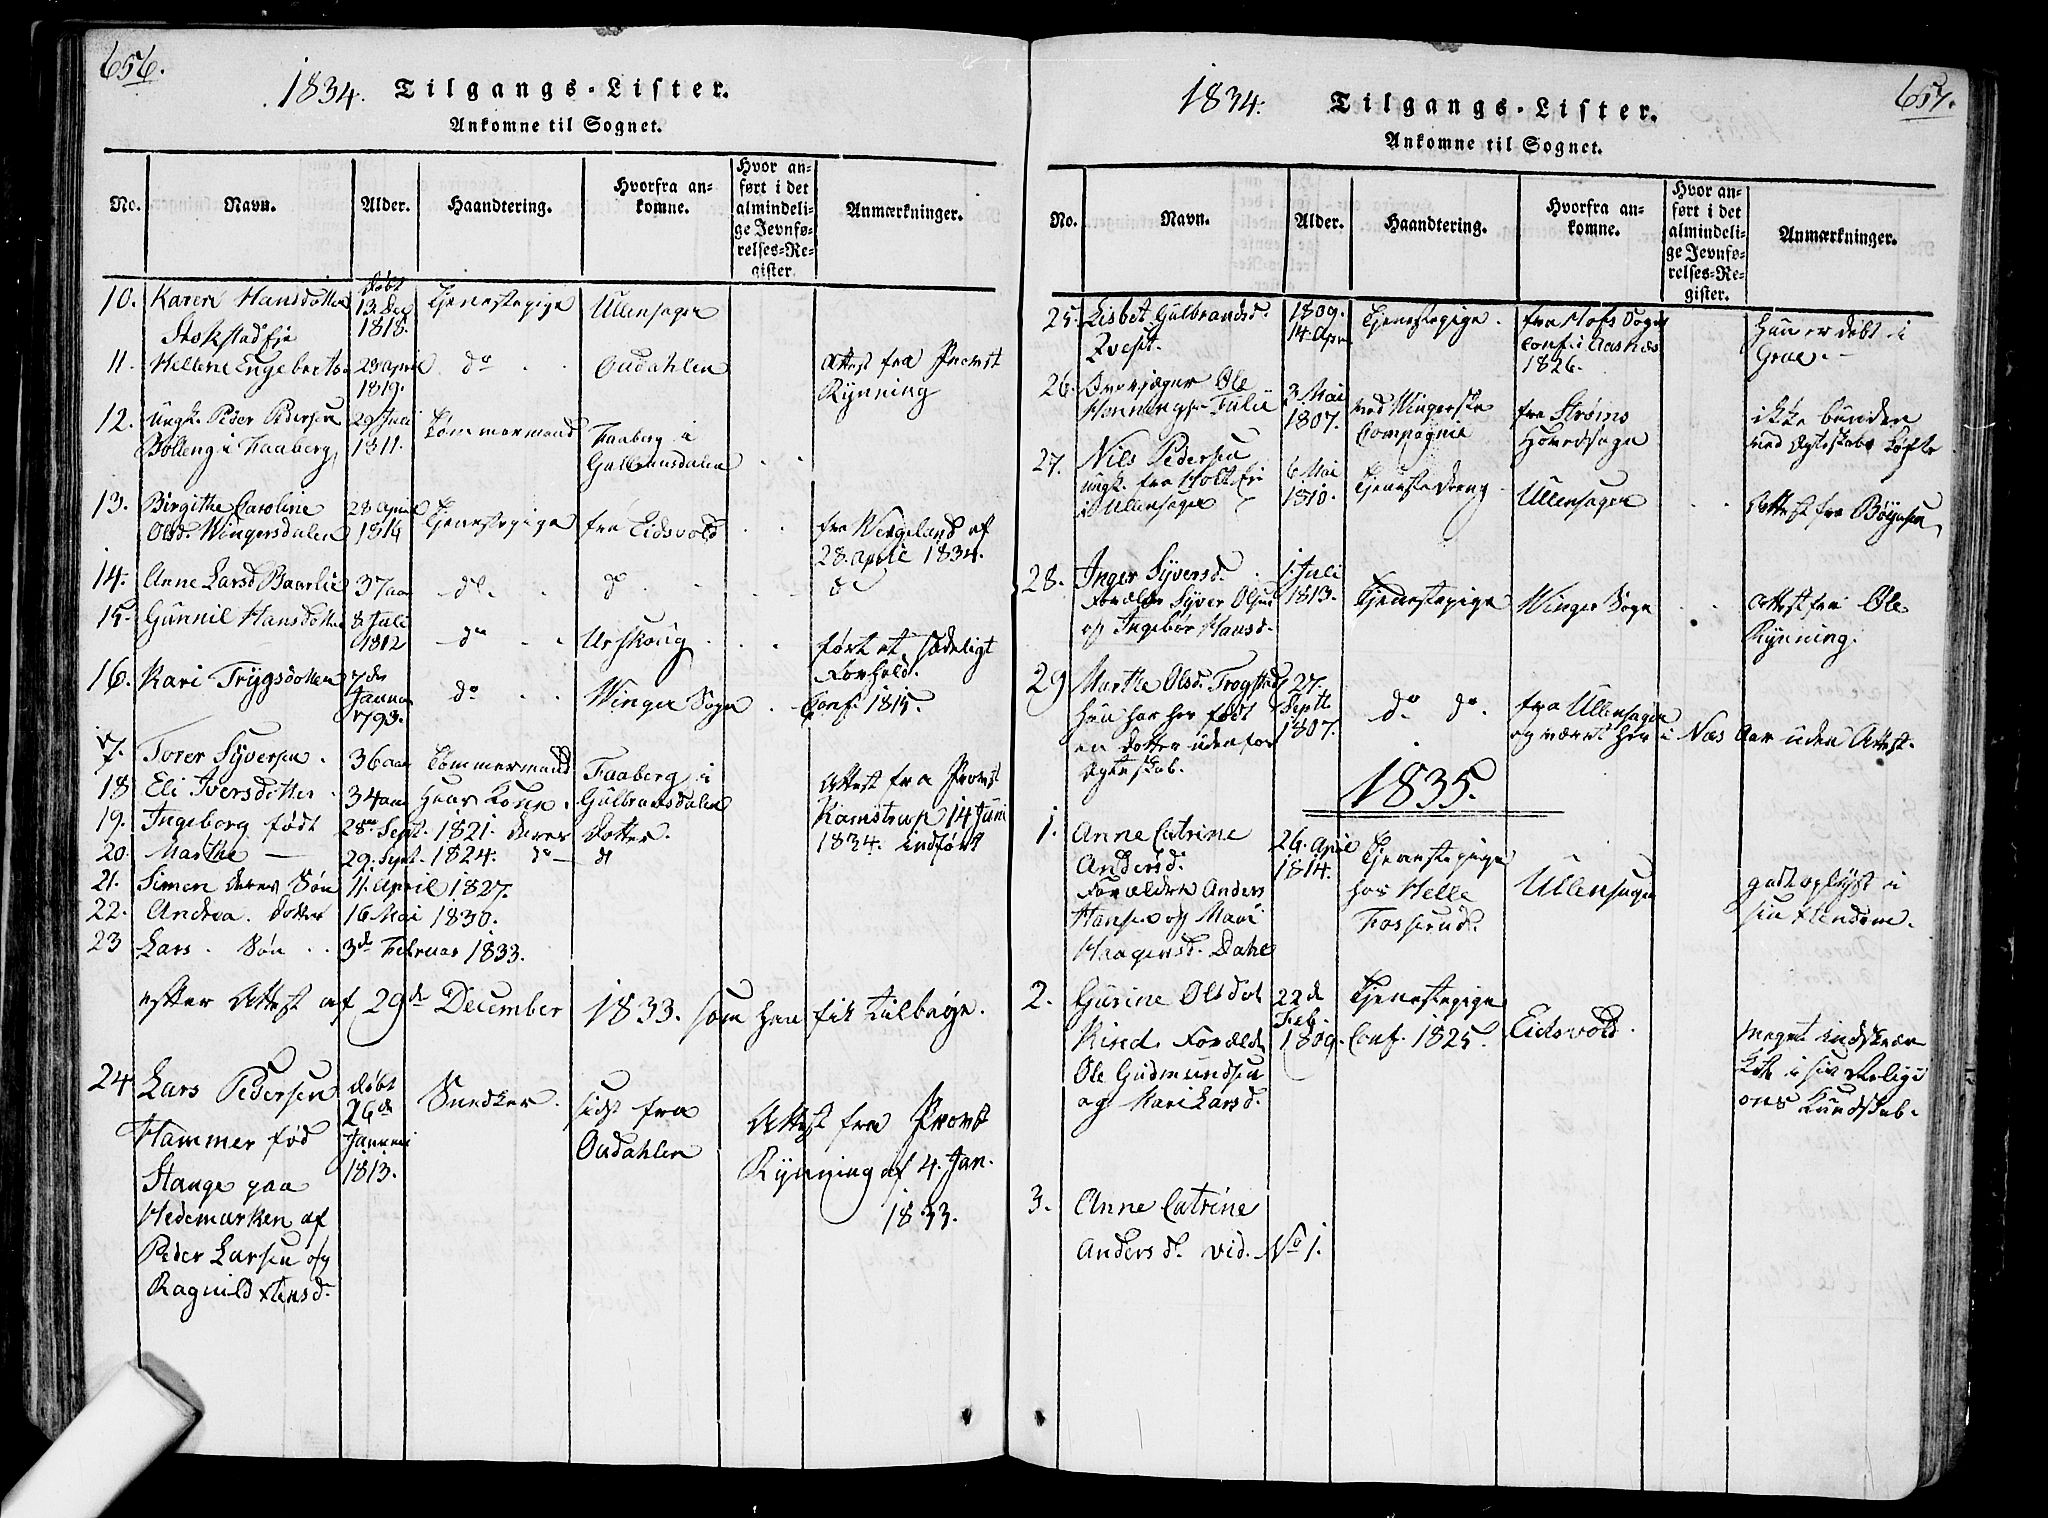 656.
1834. Tilgangs-Lister.
Ankomne til Sognet.
No. Navn. Alder. Haandtering. Hvorfra ankomne. Hvor anført i det almindelige Jevnførelses-Register. Anmærkninger.
10. Karen Hansdotter døbt 13 Dec 1818. Tjenestepige Ullensager
Stokstadeje
11. Hellene Engebertsd 23 April 1819. do Oudahlen Attest fra Provst Rynning
12. Ungk. Peder Pedersen 29 Juli 1811. Tømmermand Faaberg i Gulbransdalen
Bolleng i Faaberg
13. Birgithe Caroline 28 April 1814 Tjenestepige fra Eidsvold fra Wergeland af 28 April 1834.
Olsd. Wingersdalen
14. Anne Larsd 37 aar do. do
15. Gunnil Hansdotter 8 Juli 1812 do Urskoug ført et sædeligt Forhold.
16. Kari Trygsdotter 7de Januar 1793. do Winger Sogn Conf. 1815
17. Torer Syversen. 36 aar Tømmermand Faaberg i Attest fra Provst
18 Eli Iversdotter 34 aar Hans Kone. Gulbransdalen Kamstrup 14 Juni
19. Ingeborg født 28de Sept. 1821. deres Dotter. 1834. indført
20. Marthe — 29. Sept. 1824. do — d
21. Simen deres Søn 11. April 1827.
22. Andrea. dotter 16 Mai 1830.
23 Lars. Søn 3de Februar 1833.
efter Attest af 29de December 1833. som han fik tilbage.
24. Lars Pedersen døbt 26de Januar 1813. Snedker. sidst fra Oudahlen Attest fra Provst Rynning af 4. Jan. 1833.
Hammer fød
Stange paa
Hedemarken af
Peder Larsen og
Ragnild Hansd.
657.
1834. Tilgangs-Lister.
Ankomne til Sognet.
No. Navn. Alder. Haandtering. Hvorfra ankomne. Hvor anført i det almindelige Jevnførelses-Register. Anmærkninger.
25. Lisbet Gulbrandsd. 1809. 14 Apr Tjenestepige. fra Hofs Sogn Conf. i Aasnæs 1826. Hun er døbt i Grue.
26. Ole Henningsen 3 Mai 1807. ved Wingerske Compagnie fra Strøms Hovedsogn ikke bunden ved Ægteskabs Løfte
27. Nils Pedersen 6 Mai 1810. Tjenestedreng Ullensager Attest fra
ungk. fra Holt Eje
i Ullensager
28. Inger Syversd. 1. Juli 1813. Tjenestepige Winger Sogn Attest fra Ole Rynning.
Forældre Syver Olsen
og Ingebor Hansd.
29 Marthe Olsd. Trogstad 27. Septb 1807. do do. fra Ullensager
Hun har her født og været her i Næs Aar uden Attest.
en Dotter udenfor
Ægteskab.
1835.
1. Anne Catrine 26. April 1814. Tjenestepige hos Helle Fosserud. Ullensager godt oplyst i sin Xtendom.
Andersd.
Forældre Anders
Hansen og Mari
Haagensd. Dahl
2. Gurine Olsdot 22de Feb. 1809. Tjenestepige Conf. 1825. Eidsvold. meget indskrænket i sin Religions Kundskab.
Rind. Forældre
Ole Gudmundsen
og Mari Larsd.
3. Anne Catrine
Andersd. vid. No 1.